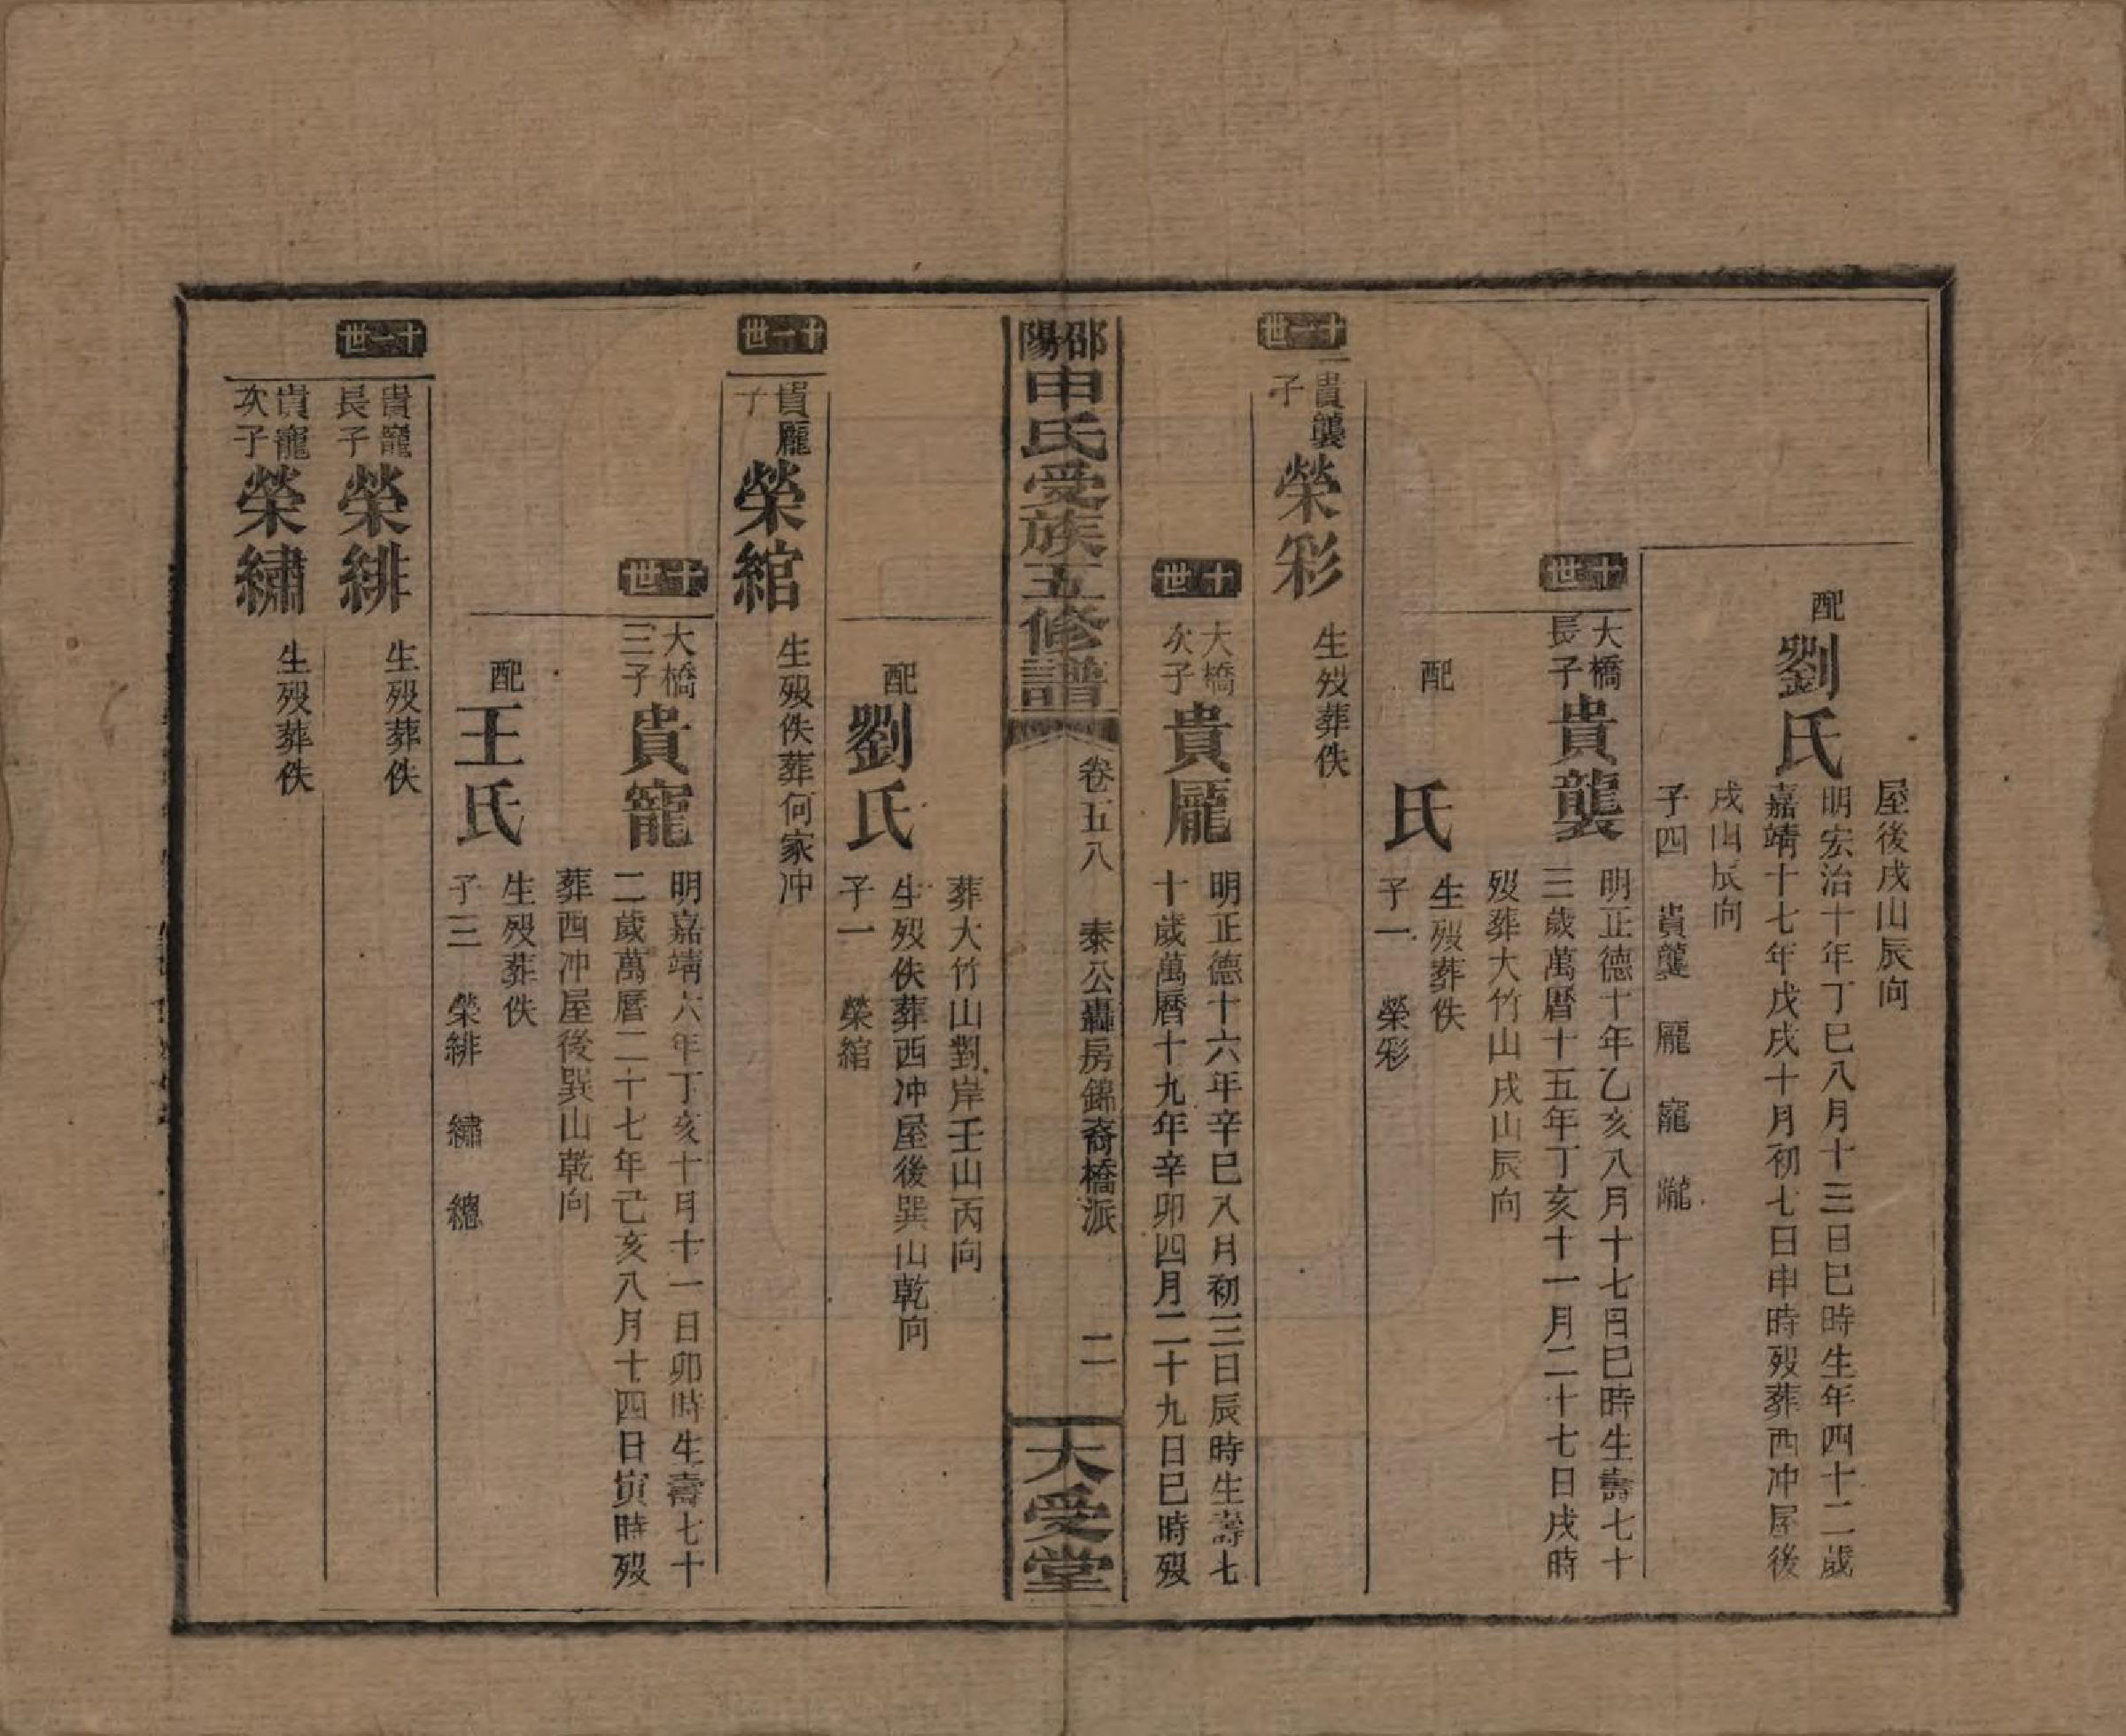 屋後戌山辰向
配
劉氏
明宏治十年丁巳八月十三日巳時生年四十二歲
嘉靖十七年戊戌十月初七日申時歿葬西冲屋後
戌山辰向
子四 貴龔 龎 寵 巃
十世
大橋
長子
貴龔
明正德十年乙亥八月十七日巳時生壽七十
三歲萬曆十五年丁亥十一月二十七日戌時
歿葬大竹山戌山辰向
配
氏
生歿葬佚
子一 榮彩
十一世
貴龔
子
榮彩
生歿葬佚
十世
大橋
次子
貴龎
明正德十六年辛巳八月初三日辰時生壽七
十歲萬曆十九年辛卯四月二十九日巳時歿
邵陽申氏受族五修譜
卷五八 泰公轟房錦裔橋派
二
大受堂
葬大竹山對岸壬山丙向
配
劉氏
生歿佚葬西冲屋後巽山乾向
子一 榮綰
十一世
貴龎
子
榮綰
生歿佚葬何家冲
十世
大橋
三子
貴寵
明嘉靖六年丁亥十月十一日卯時生壽七十
二歲萬曆二十七年己亥八月十四日寅時歿
葬西冲屋後巽山乾向
配
王氏
生歿葬佚
子三 榮緋 繡 總
十一世
貴寵
長子
榮緋
生歿葬佚
貴寵
次子
榮繡
生歿葬佚